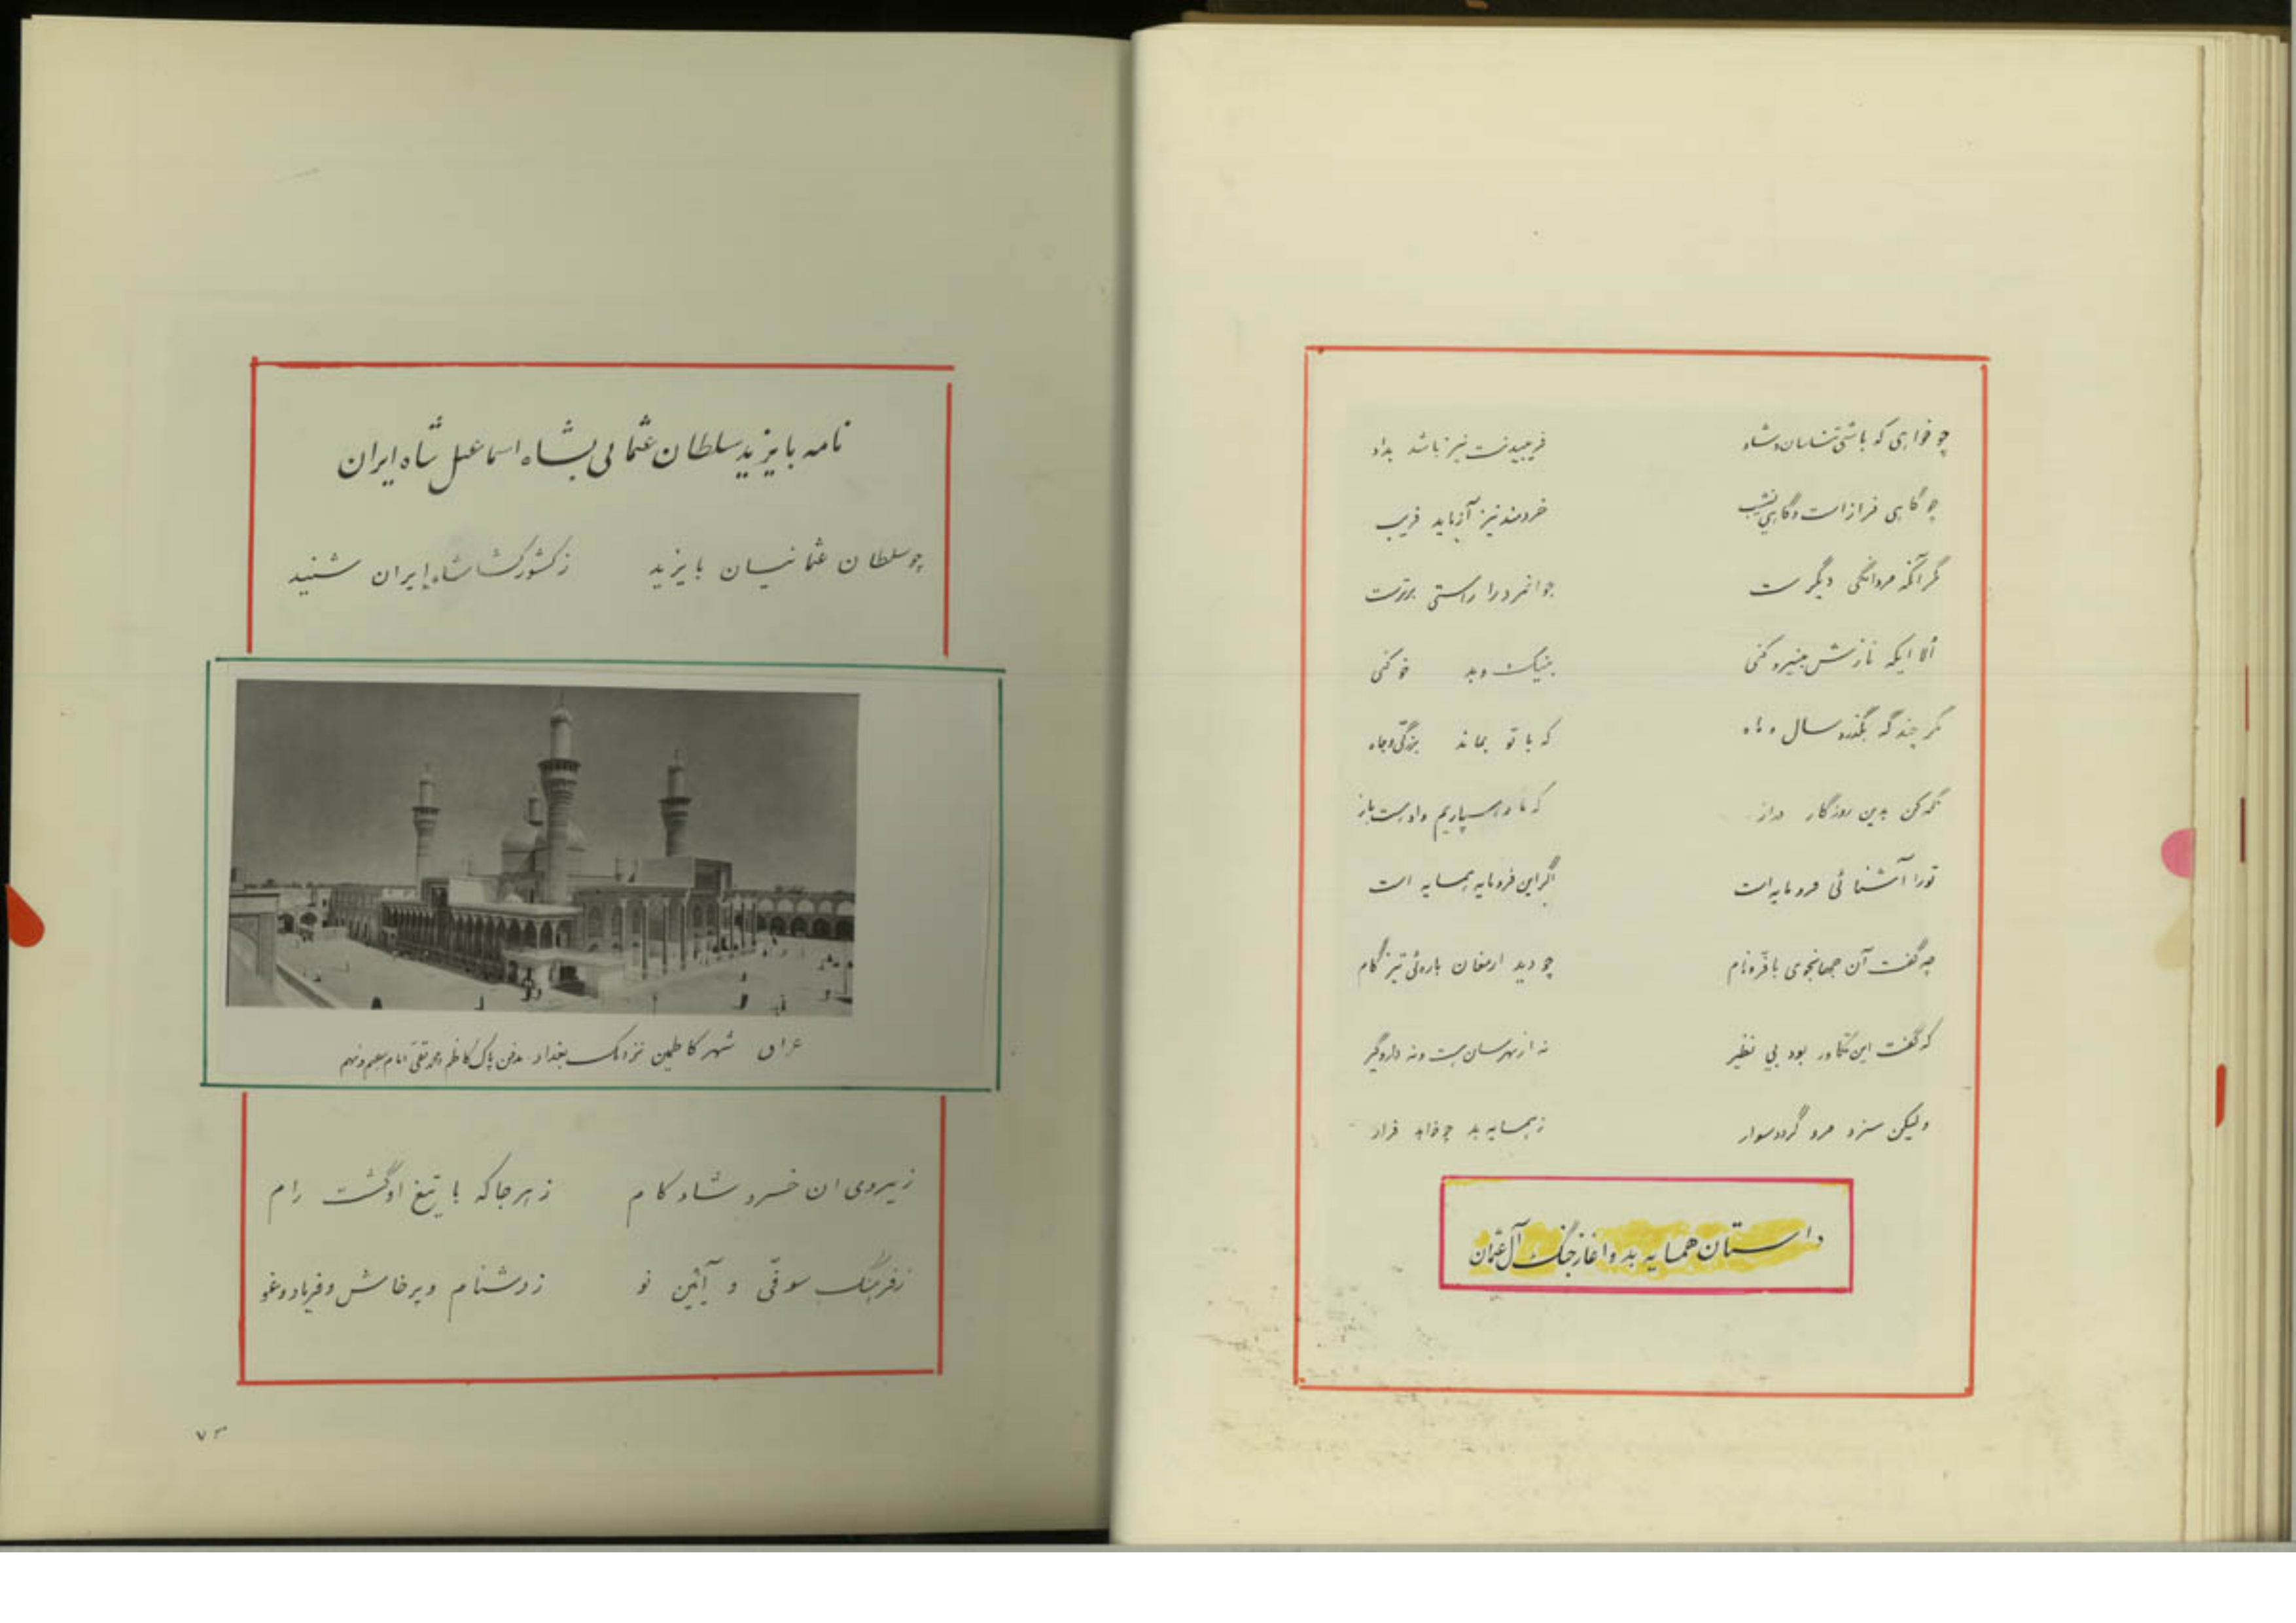 چو خواهی که باشی تناسان و شاد فریبیدنت نیز باشد بداد
چو گاهی فراز است و گاهی نشیب خردمند نیز آزماید فریب
گر آنکه مردانگی دیگر ست جوانمرد را راستی برترست
الا ایکه نازش بنیرو کنی بنیک و بد خو کنی
مگر چند گه بگذرد سال و ماه که با تو بماند بزرگی و جاه
نگه کن بدین روزگار دراز که تا بسپاریم و باز
تورا آشنائی فرومایه است اگر این فرومایه همسایه است
چه گفت آن جهانجوی با فر و نام چو دید ارمغان باره‌ئی تیز گام
که گفت این تکاور بود بی نظیر نه از بهر سان است و نه دار و گیر
ولیکن سزد مرد گردد سوار ز همسایه بد چو خواهد فرار
داستان همسایه بد و اغاز جنگ آل عثمان
نامه بایزید سلطان عثمانی بشاه اسماعیل شاه ایران
چو سلطان عثمانیان بایزید ز کشورگشا شاه ایران شنید
عراق شهر کاظمین نزدیک بغداد مدفن پاک کاظم و محمد تقی امام هفتم و نهم
ز نیروی ان خسرو شاد کام ز هر جا که با تیغ او گشت رام
ز فرهنگ سوفی و آئین نو ز دشنام و پرخاش و فریاد و غو
۷۳